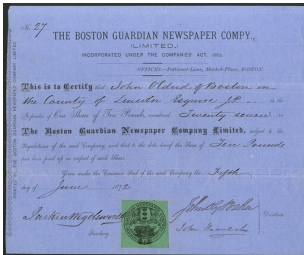 No. 27
THE BOSTON GUARDIAN NEWSPAPER COMPY.,
(LIMITED.)
INCORPORATED UNDER THE COMPANIES' ACT, 1862.
OFFICES:—Petticoat-Lane, Market-Place, BOSTON.
This is to Certify that John Oldrid of Boston in
the County of Lincoln Esquire J.P. is the
Proprietor of One Share of Ten Pounds, numbered Twenty seven in
The Boston Guardian Newspaper Company Limited, subject to the
Regulations of the said Company, and that to the date hereof the Sum of Ten Pounds
has been paid up in respect of such Share.
Given under the Common Seal of the said Company the Fifth
day of June 1872
Directors
Secretary John